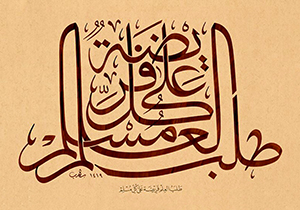 طلب العلم فريضة على كل مسلم
١٤١٩
طَلَبُ العِلْمِ فَرِيضَةٌ عَلَى كُلِّ مُسْلِمٍ